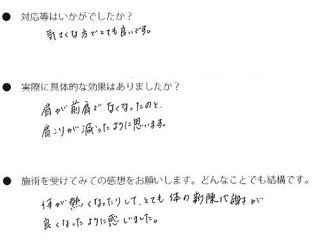 ● 対応等はいかがでしたか?
気さくな方でとても良いです。
● 実際に具体的な効果はありましたか?
肩が前肩でなくなったのと、
肩こりが減ったように思います。
● 施術を受けてみての感想をお願いします。どんなことでも結構です。
体が熱くなったりして、とても体の新陳代謝が
良くなったように感じました。